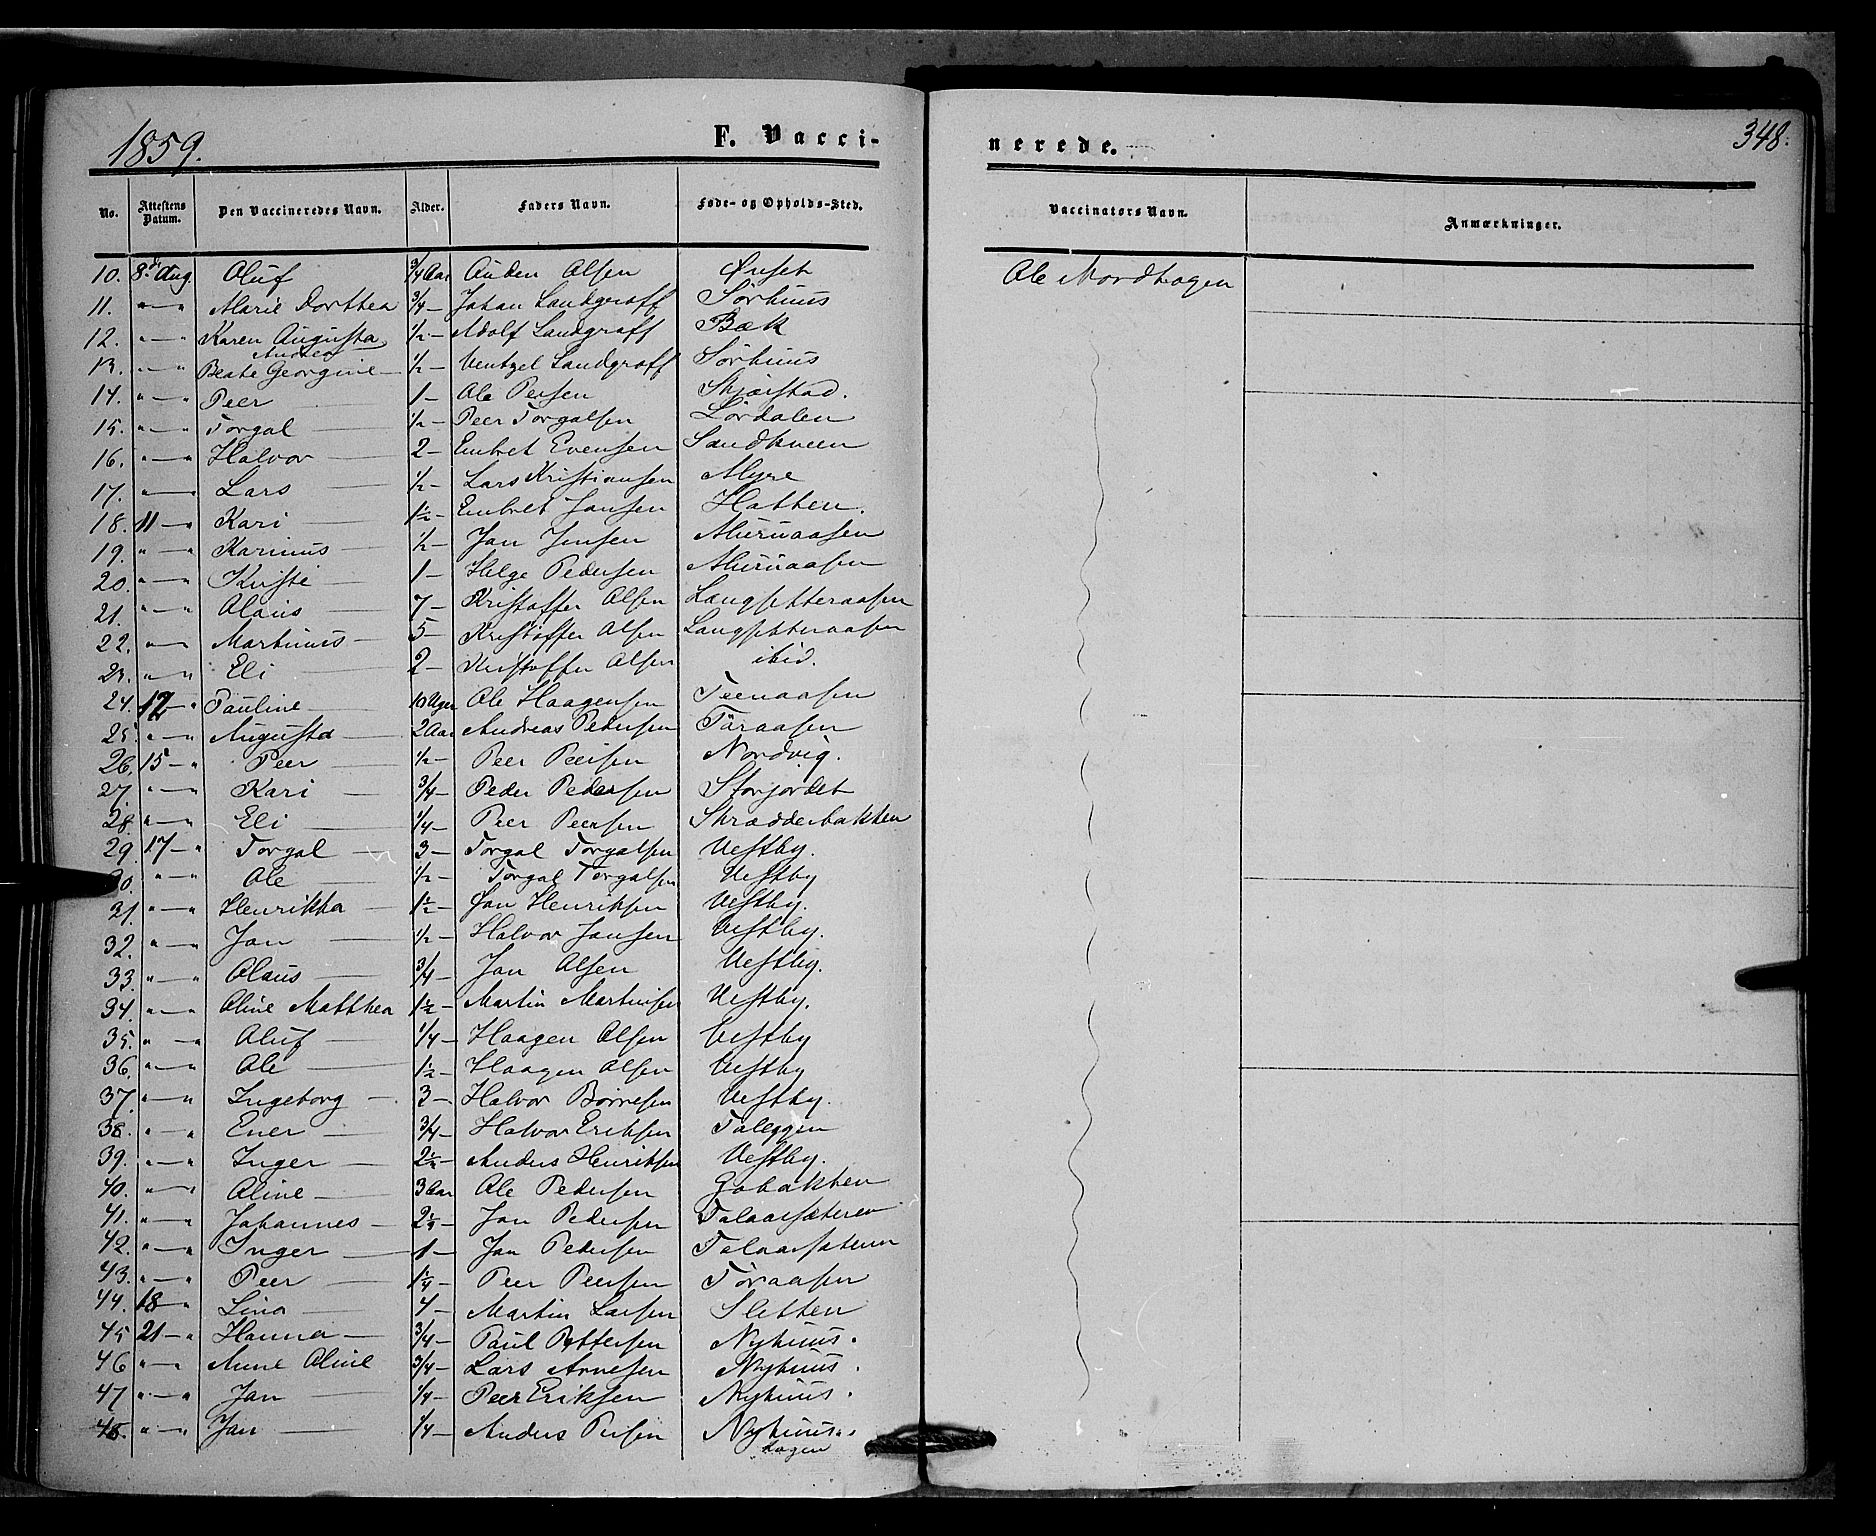 1859.
F. Vacci-
nerede.
348.
No. Attestens Datum. Den Vaccineredes Navn. Alder. Faders Navn. Føde- og Opholds-Sted. Vaccinators Navn. Anmærkninger.
10. 8de Aug. Oluf 3/4 Aar Auden Olsen Ønset Ole Nordhagen
11. " — " Marie Dorthea 3/4 — Johan Landgraff Sørhuus
12. " — " Karen Augusta 1/2 — Adolf Landgraff Bæk
Andrea
13. " — " Beate Georgine — 1/2 — Ventzel Landgraff Sørhuus
14. " — " Peer 1 — Ole Persen Skjærstad.
15. " — " Torgal 1/2 — Peer Torgalsen Lørdalen
16. " — " Halvor 2 — Embret Evensen Sandkveen
17. " — " Lars 1/2 — Lars Kristiansen Myre
18. 11 — " Kari 1 1/2 — Embret Jonsen Hatten.
19. " — " Karinus 1/2 — Jon Jensen Muruaasen
20. " — " Kristi 1 — Helge Pedersen Muruaasen
21. " — " Olaus 7 — Kristoffer Olsen Langsetteraasen
22. " — " Martinus 5 — Kristoffer Olsen Langsetteraasen
23. " — " Eli 2 — Kristoffer Olsen ibid.
24. 12 — " Pauline 10 Uger Ole Haagensen Teenaasen
25. " — " Augusta 2 Aar Andreas Pedersen Töraasen
26. 15 — " Peer 1/2 — Peer Peersen Nordvig.
27. " — " Kari 3/4 — Peder Pedersen Storjordet
28. " — " Eli 1/4 — Peer Peersen Skrædderbakken
29. 17 — " Torgal 3 — Torgal Torgalsen Vestby.
30. " — " Ole 1/2 — Torgal Torgalsen Vestby
31. " — " Henrikka 1 1/2 — Jon Henriksen Vestby.
32. " — " Jon 1/2 — Halvor Jonsen Vestby.
33. " — " Olaus 3/4 — Jon Olsen Vestby.
34. " — " Oline Matthea 1 1/2 — Martin Martinsen Vestby.
35. " — " Oluf 1/4 — Haagen Olsen Vestby
36. " — " Ole 1 1/2 — Haagen Olsen Vestby
37. " — " Ingeborg 3 — Halvor Børresen Vestby.
38. " — " Ener 3/4 — Halvor Eriksen Taleggen
39. " — " Inger 2 1/2 — Anders Henriksen Vestby.
40. " — " Oline 3 Aar Ole Pedersen Gobakken
41. " — " Johannes 2 1/2 — Jon Pedersen Talaassæteren
42. " — " Inger 1 — Jon Pedersen Talaassæteren
43. " — " Peer 1 1/4 — Peer Peersen Töraasen
44. 18 — " Lina 4 — Martin Larsen Sletten
45 21 — " Hanna 3/4 — Paul Pettersen Nyhuus.
46 " — " Anne Oline 3/4 — Lars Arnesen Nyhuus.
47 " — " Jon 1/4 — Peer Eriksen Nyhuus.
48. " — " Jon 1/4 — Anders Persen Nyhuus-
hagen